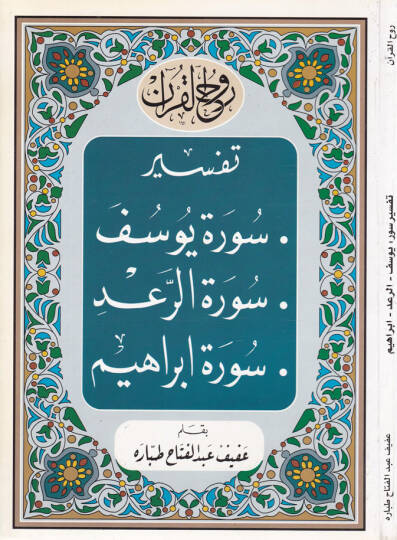 روح القرآن
تفسير
. سُورَة يُوسُفَ
. سُورَة الرَّعدِ
. سُورَة ابراهيم
بقلم
عَفيف عَبد الفتّاح طبّاره
روح القرآن
تفسير سور: يوسف - الرعد - ابراهيم
عفيف عبد الفتاح طباره